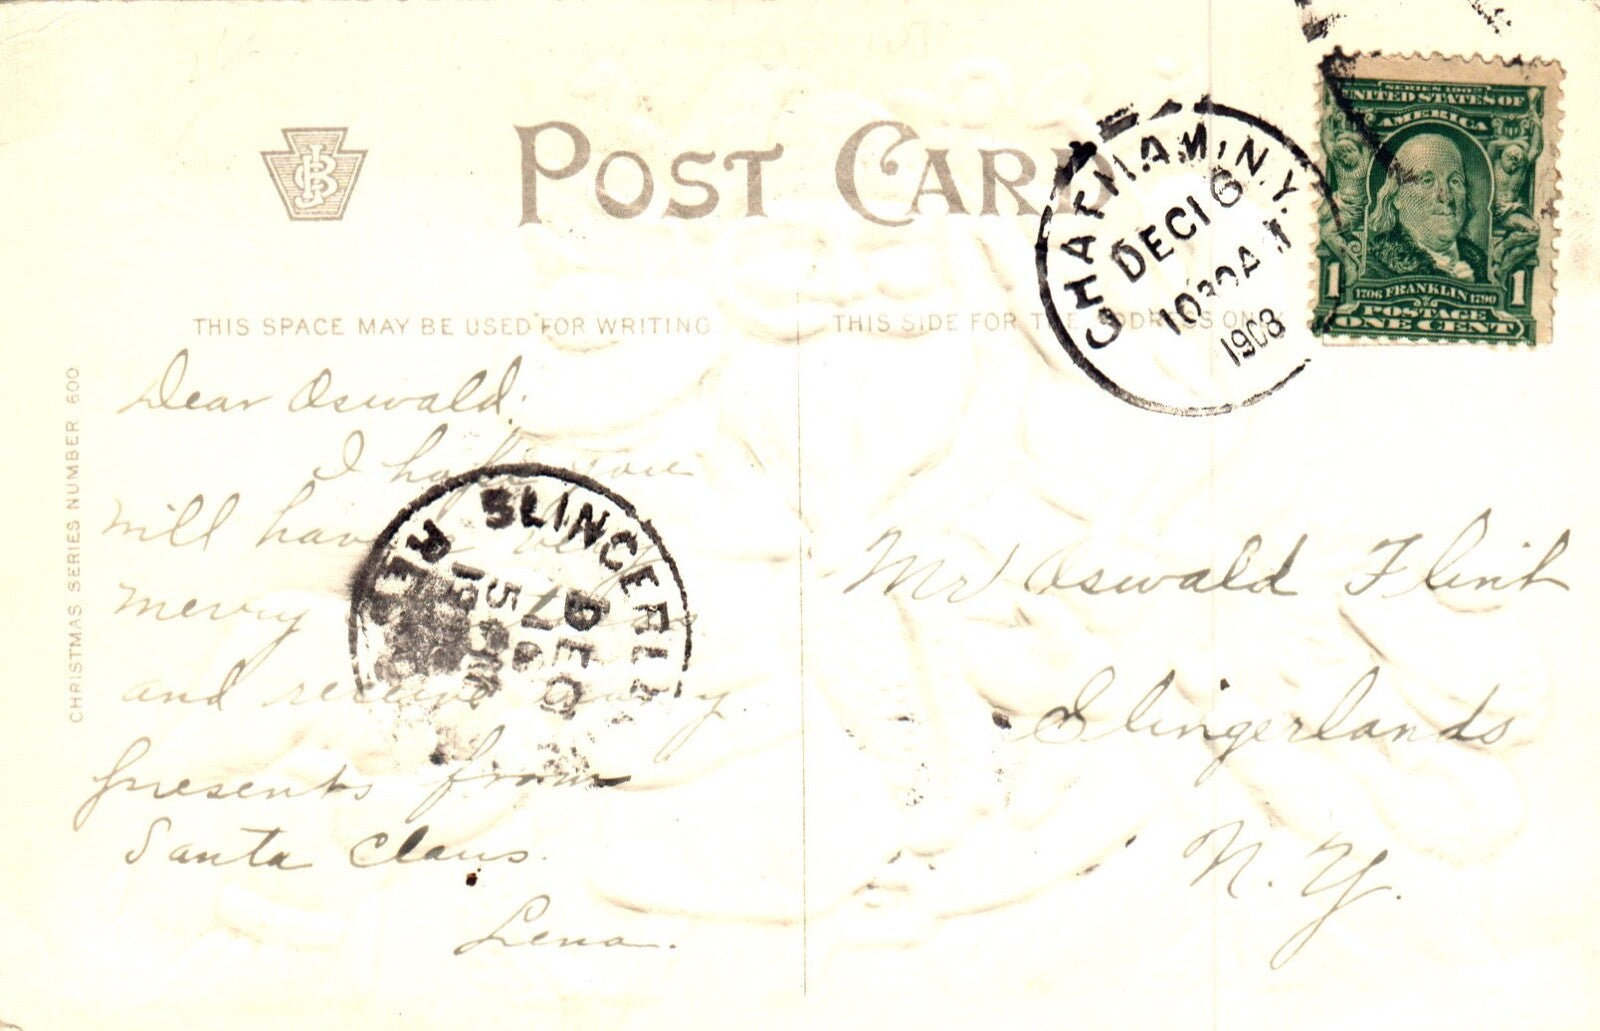 POST CARD
THIS SPACE MAY BE USED FOR WRITING
THIS SIDE FOR THE ADDRESS ONLY
CHRISTMAS SERIES NUMBER 600
JPS
CHATHAM, N.Y.
DEC 16
1030A
1908
SERIES 1902
UNITED STATES OF
AMERICA
1 1
1706 FRANKLIN 1790
POSTAGE
ONE CENT
Dear Oswald:
I hope you
will have a very
merry
and receive many
presents from
Santa Claus.
Lena.
SLINGERLA
REC
DEC
5
19
Mr Oswald Flint
Slingerlands
N. Y.